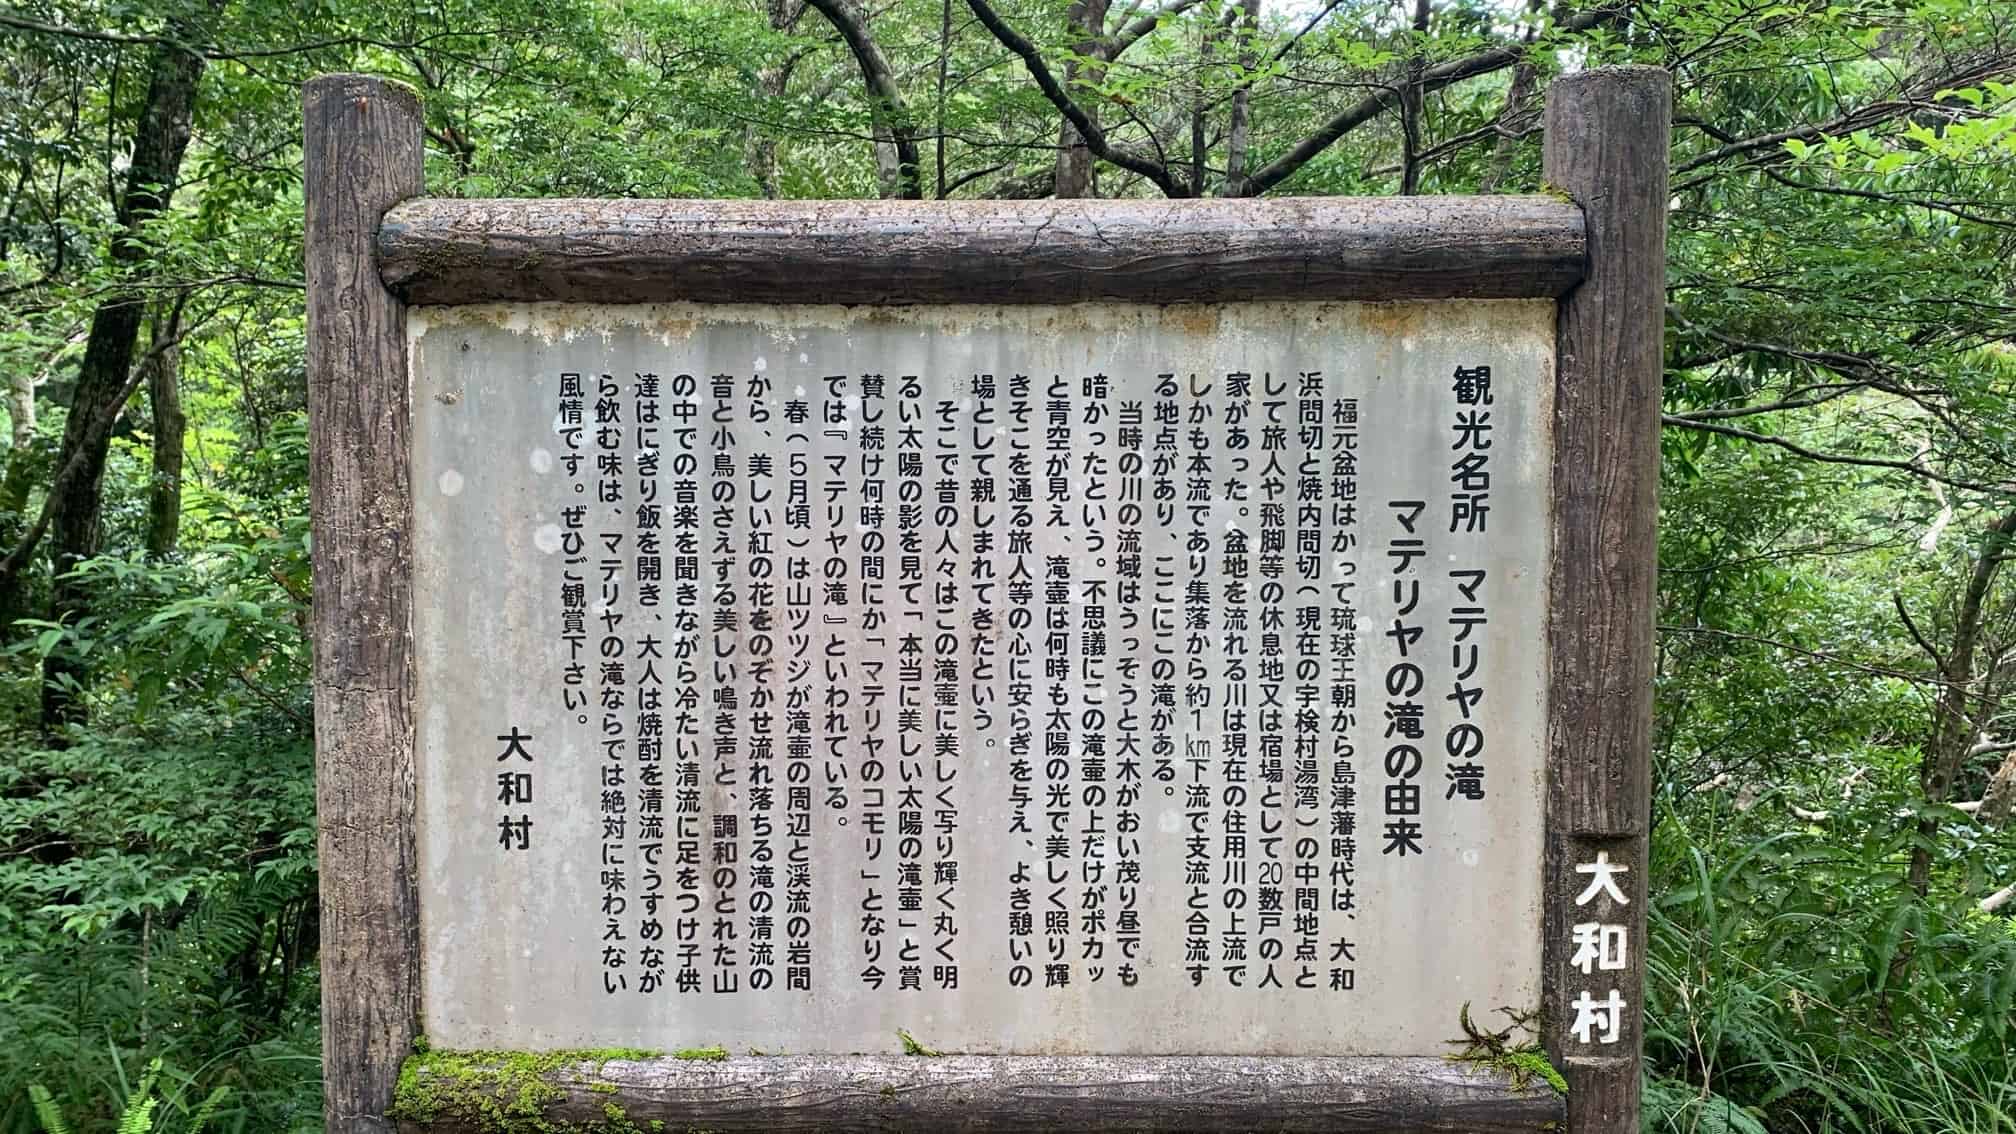 観光名所 マテリヤの滝
マテリヤの滝の由来
福元盆地はかって琉球王朝から島津藩時代は、大和
浜間切と焼内間切(現在の宇検村湯湾)の中間地点と
して旅人や飛脚等の休息地又は宿場として20数戸の人
家があった。盆地を流れる川は現在の住用川の上流で
しかも本流であり集落から約1㎞下流で支流と合流す
る地点があり、ここにこの滝がある。
当時の川の流域はうっそうと大木がおい茂り昼でも
暗かったという。不思議にこの滝壷の上だけがポカッ
と青空が見え、滝壷は何時も太陽の光で美しく照り輝
きそこを通る旅人等の心に安らぎを与え、よき憩いの
場として親しまれてきたという。
そこで昔の人々はこの滝壷に美しく写り輝く丸く明
るい太陽の影を見て「本当に美しい太陽の滝壷」と賞
賛し続け何時の間にか「マテリヤのコモリ」となり今
では『マテリヤの滝』といわれている。
春(5月頃)は山ツツジが滝壷の周辺と渓流の岩間
から、美しい紅の花をのぞかせ流れ落ちる滝の清流の
音と小鳥のさえずる美しい鳴き声と、調和のとれた山
の中での音楽を聞きながら冷たい清流に足をつけ子供
達はにぎり飯を開き、大人は焼酎を清流でうすめなが
ら飲む味は、マテリヤの滝ならでは絶対に味わえない
風情です。ぜひご観賞下さい。
大和村
大和村